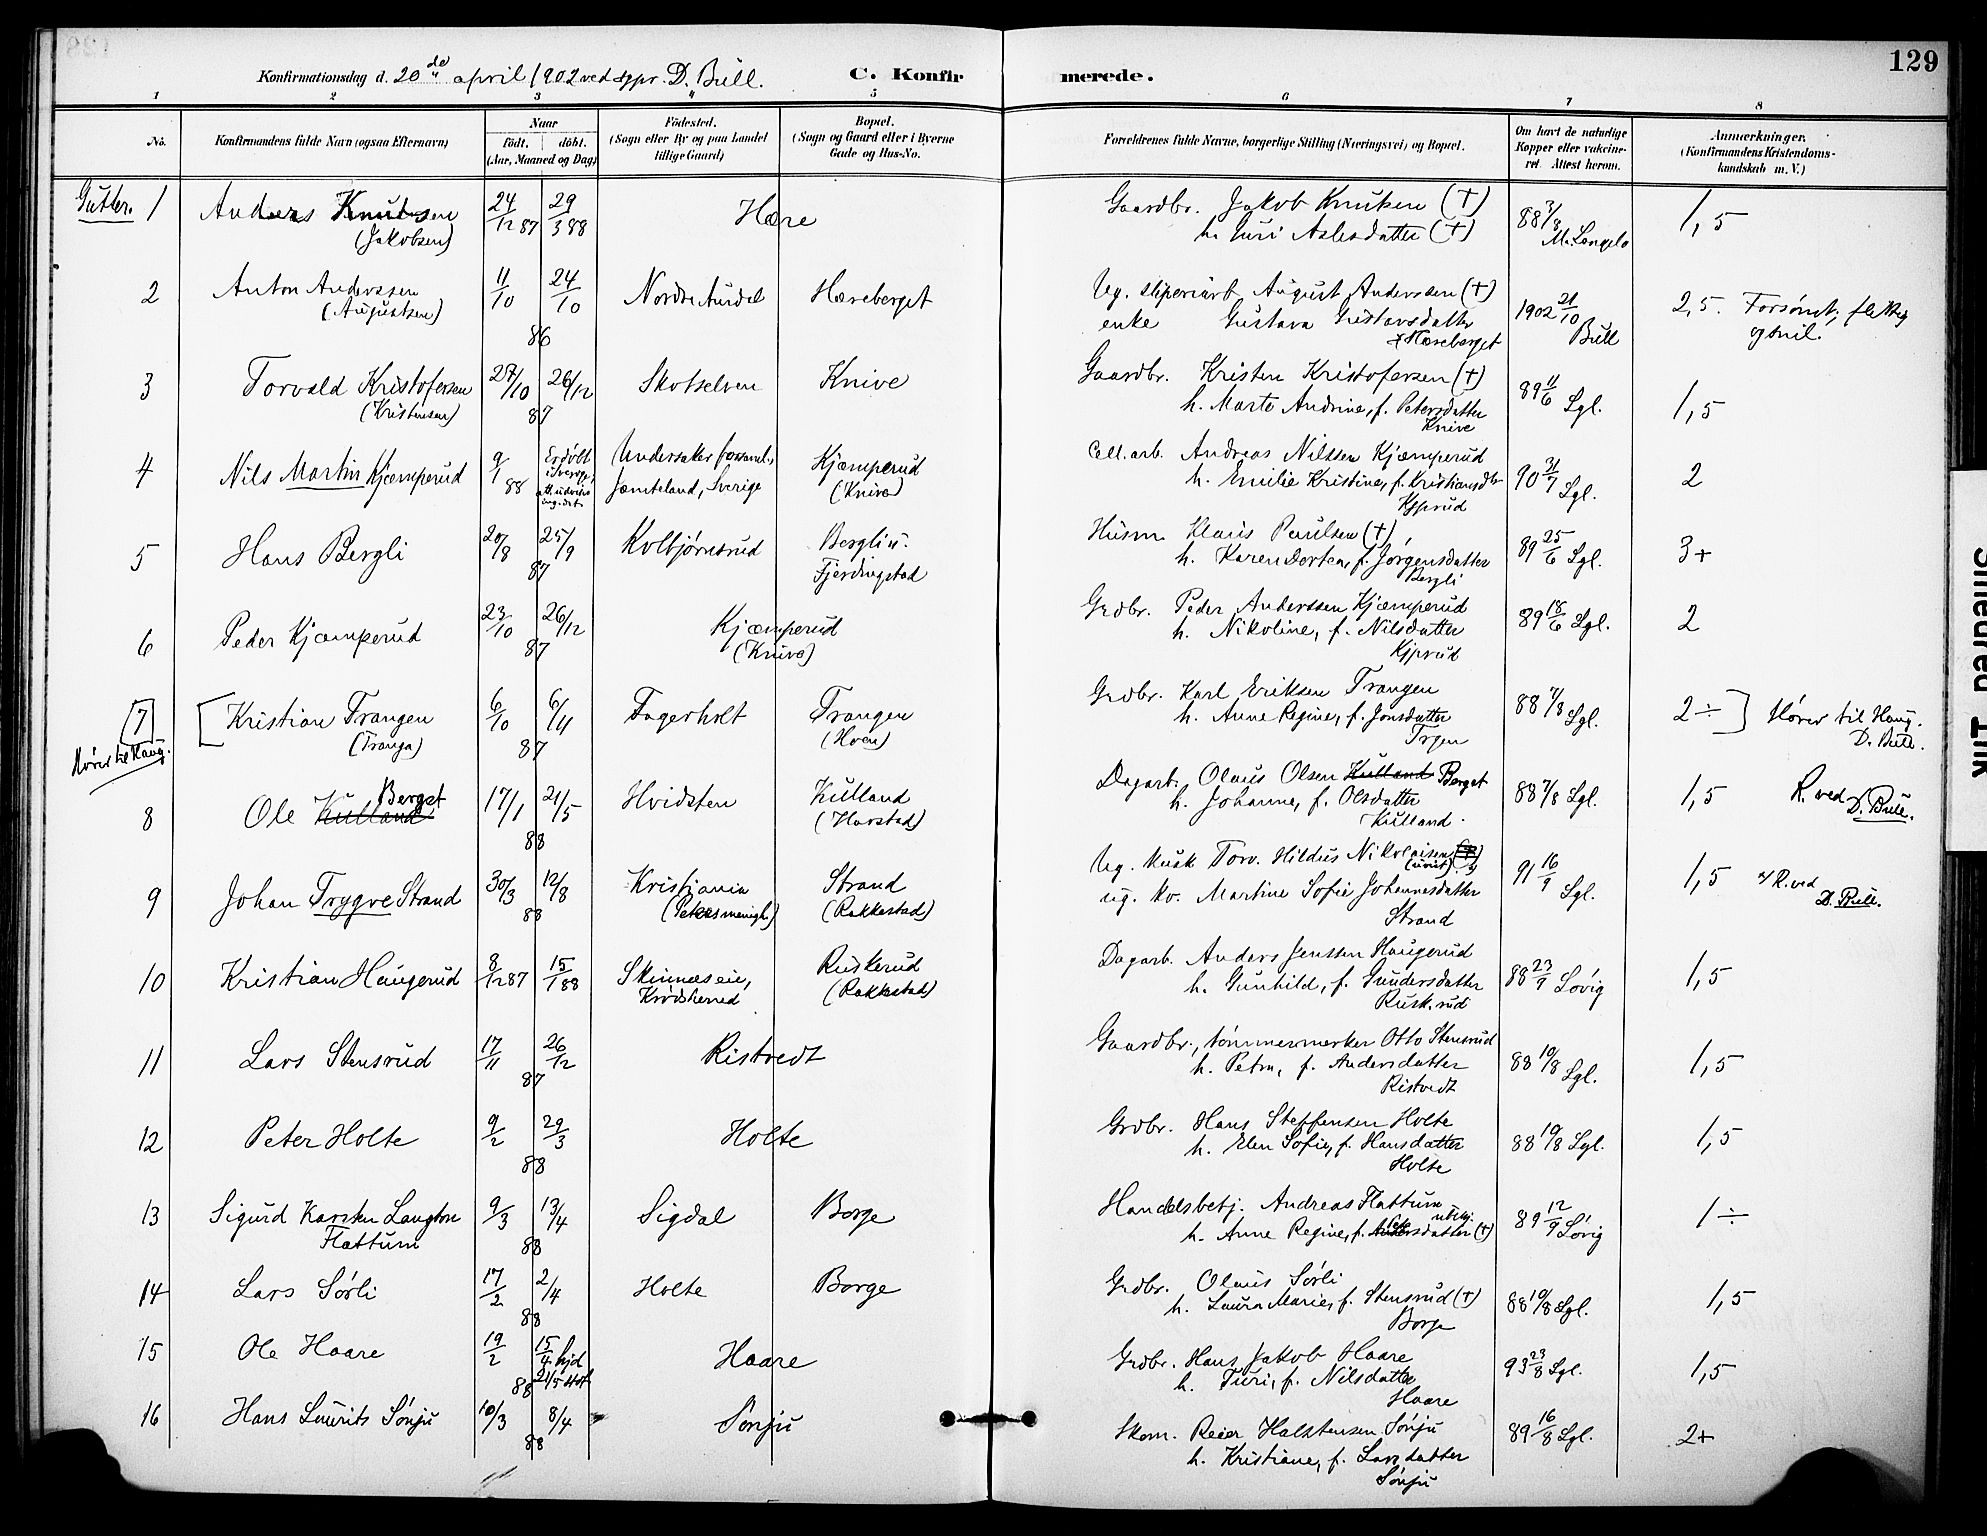 129
Konfirmationsdag d. 20de april 1902 ved sppr. D. Bull. C. Konfirmerede.
1 2 3 4 5 6 7 8
No. Konfirmandens fulde Navn (ogsaa Efternavn)
Naar født. døbt. (Aar, Maaned og Dag)
Fødested. (Sogn eller By og paa Landet tillige Gaard)
Bopæl. (Sogn og Gaard eller i Byerne Gade og Hus-No.
Forældrenes fulde Navne, borgerlige Stilling (Næringsvei) og Bopæl.
Om havt de naturlige Kopper eller vakcineret. Attest herom.
Anmærkninger. (Konfirmandens Kristendomskundskab m. V.)
Gutter. 1 Anders Knutsen 24/12 87 29/3 88 Hære Gaardbr. Jakob Knutsen (†) 88 3/8 1,5
(Jakobsen) h. Guri Aslesdatter (†) M. Lengelo
2 Anton Anderssen 11/10 24/10 Nordre Aurdal Hæreberget Ug. sliperiarb August Anderssen (†) 1902 21/10 2,5. Forsømt, flittig
(Augustsen) 86 enke Gustava Gustavsdatter Bull og snil.
Hæreberget
3 Torvald Kristofersen 27/10 26/12 Skotselven Knive Gaardbr. Kristen Kristofersen (†) 89 11/6 Lgl. 1,5
(Kristensen) 87 h. Marte Andrine, f. Petersdatter
Knive
4 Nils Martin Kjæmperud 9/1 88 Er døbt Undersaker forsaml., Kjæmperud Cell. arb. Andreas Nilssen Kjæmperud 90 31/7 Lgl. 2
Jæmteland, Sverige (Knive) h. Emilie Kristine, f. Kristiansdtr
Kjprud
5 Hans Bergli 20/8 25/9 87 Kolbjørnsrud Bergli u. Husm Klaus Paulsen (†) 89 25/6 Lgl. 3+
Fjerdingstad h. Karen Dortea, f. Jørgensdatter
Bergli
6 Peder Kjæmperud 23/10 26/12 87 Kjæmperud Grdbr. Peder Anderssen Kjæmperud 89 18/6 Lgl. 2
(Knive) h. Nikoline, f. Nilsdatter
Kjprud
[7] [Kristian Trangen 6/10 6/11 Fagerholt Trangen Grdbr. Karl Eriksen Trangen 88 7/8 Lgl. 2÷ ] Hører til Haug.
Hører til Haug. (Tranga) 87 (Hoen) h. Anne Regine, f. Jonsdatter D. Bull.
Trgen
8 Ole Kulland Berget 17/1 21/5 Hvidsten Kulland Dagarb. Olaus Olsen Kulland Berget 88 7/8 Lgl. 1,5 R. ved
88 (Harstad) h. Johanne, f. Olsdatter D. Bull.
Kulland.
9 Johan Trygve Strand 30/3 12/8 Kristiania Strand Ug. kusk Torv. Hildus Nikolaisen 91 16/9 Lgl. 1,5 R. ved
88 (Petersmenigh.) (Rakkestad) ug. kv. Martine Sofie Johannesdatter D. Bull.
Strand
10 Kristian Haugerud 8/12 87 15/1 88 Skinneseie, Ruskerud Dagarb. Anders Jenssen Haugerud 88 23/9 Løvig 1,5
Krødsherred (Rakkestad) h. Gunhild, f. Gundersdatter
Rusk.rud
11 Lars Stensrud 17/11 26/12 Ristvedt Gaardbr., tømmermerker Otto Stensrud 88 10/8 Lgl. 1,5
87 h. Petra, f. Andersdatter
Ristvedt
12 Peter Holte 9/2 29/3 Holte Grdbr. Hans Steffensen Holte 88 10/8 Lgl. 1,5
88 h. Elen Sofie, f. Hansdatter
Holte
13 Sigurd Karsten Langton 9/3 13/4 Sigdal Borge Handelsbetj. Andreas Flattum 89 12/9 Løvig 1÷
Flattum 88 h. Anne Regine, f. (†)
14 Lars Sørli 17/2 2/4 Holte Borge Grdbr. Olaus Sørli 88 10/8 Lgl. 1,5
88 h. Laura Marie, f. Stensrud (†)
Borge
15 Ole Haare 19/2 15/4 hjd Haare Grdbr. Hans Jakob Haare 93 23/8 Lgl. 1,5
88 21/5 st. h. Turi, f. Nilsdatter
Haare
16 Hans Laurits Sønju 10/3 8/4 Sønju Skom. Reier Halstensen Sønju 89 16/8 Lgl. 2+
88 h. Kristiane, f. Larsdatter
Sønju